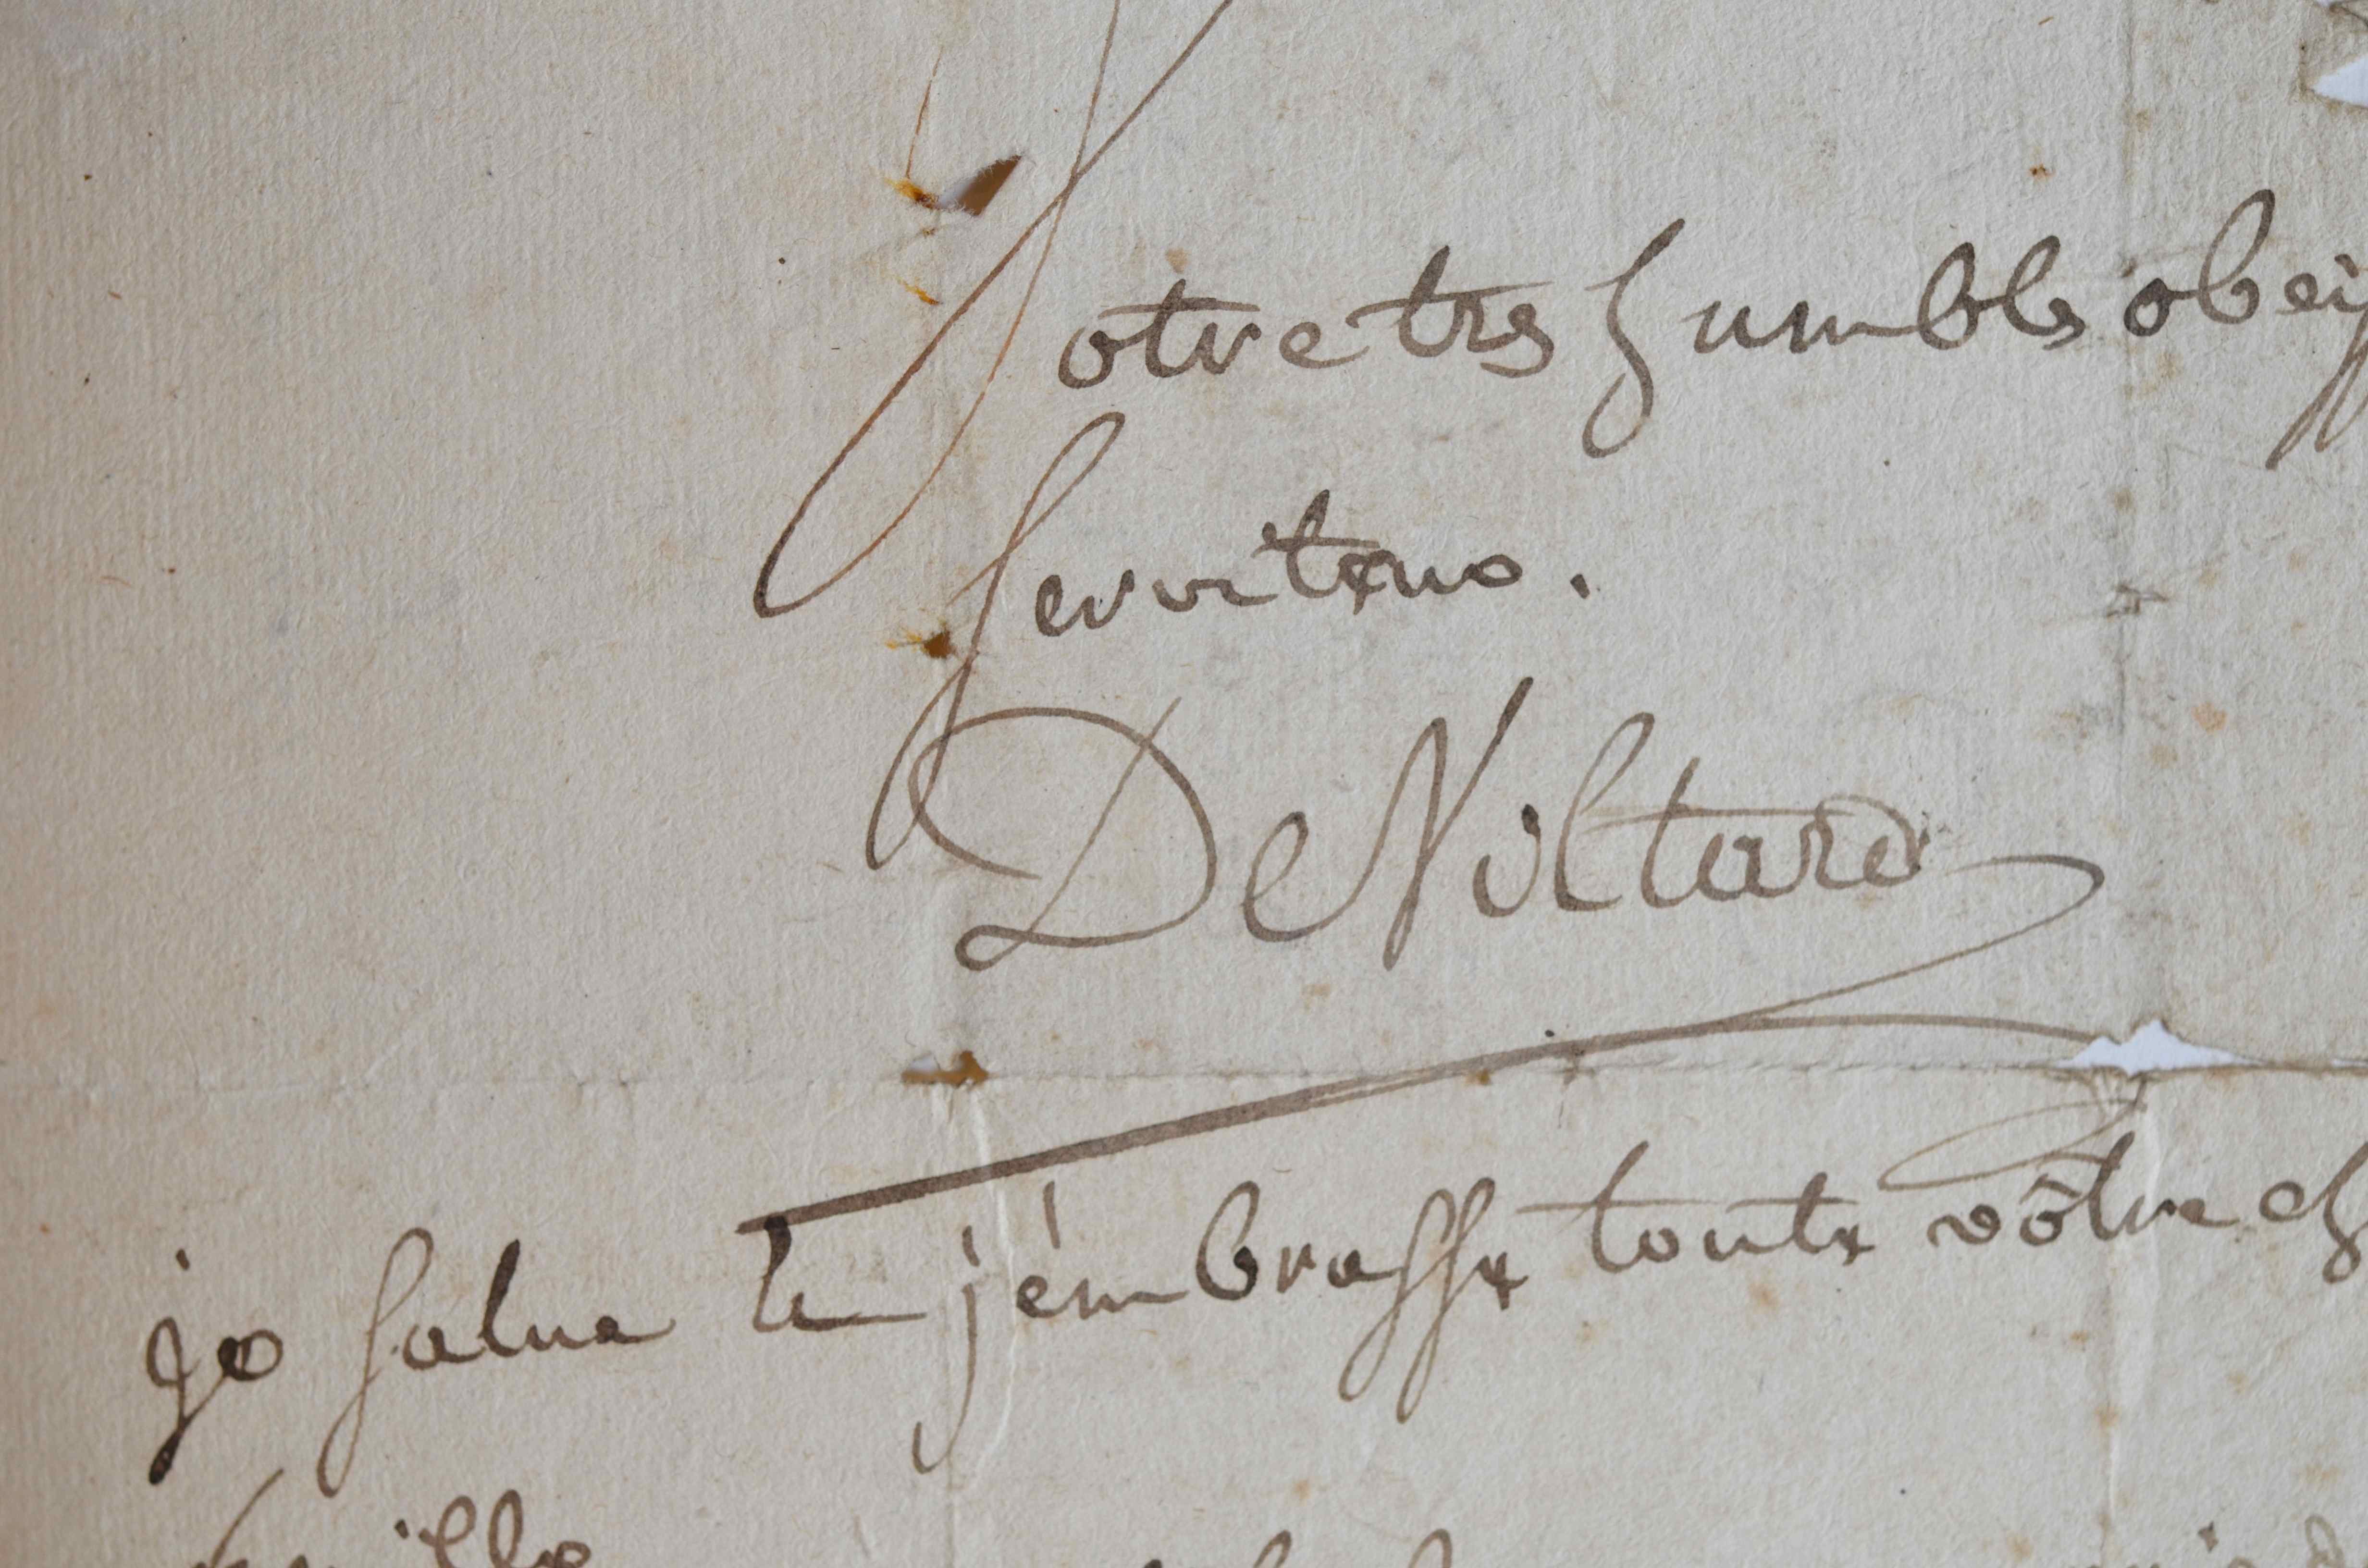 Votre tres humble obeiss
serviteur.
De Noltard
je salue et j'émbrasse toute vôtre ch
famille